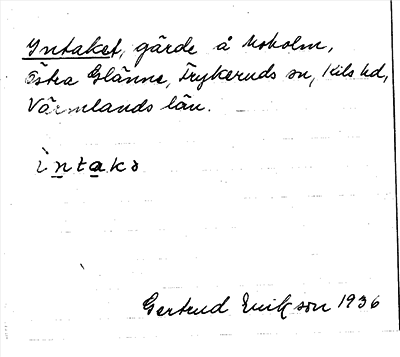 Intaket, gärde å Moholm,
Östra Glänne, Frykeruds sn, Kils hd,
Värmlands län.
ìntakə
Gertrud Erikson 1936